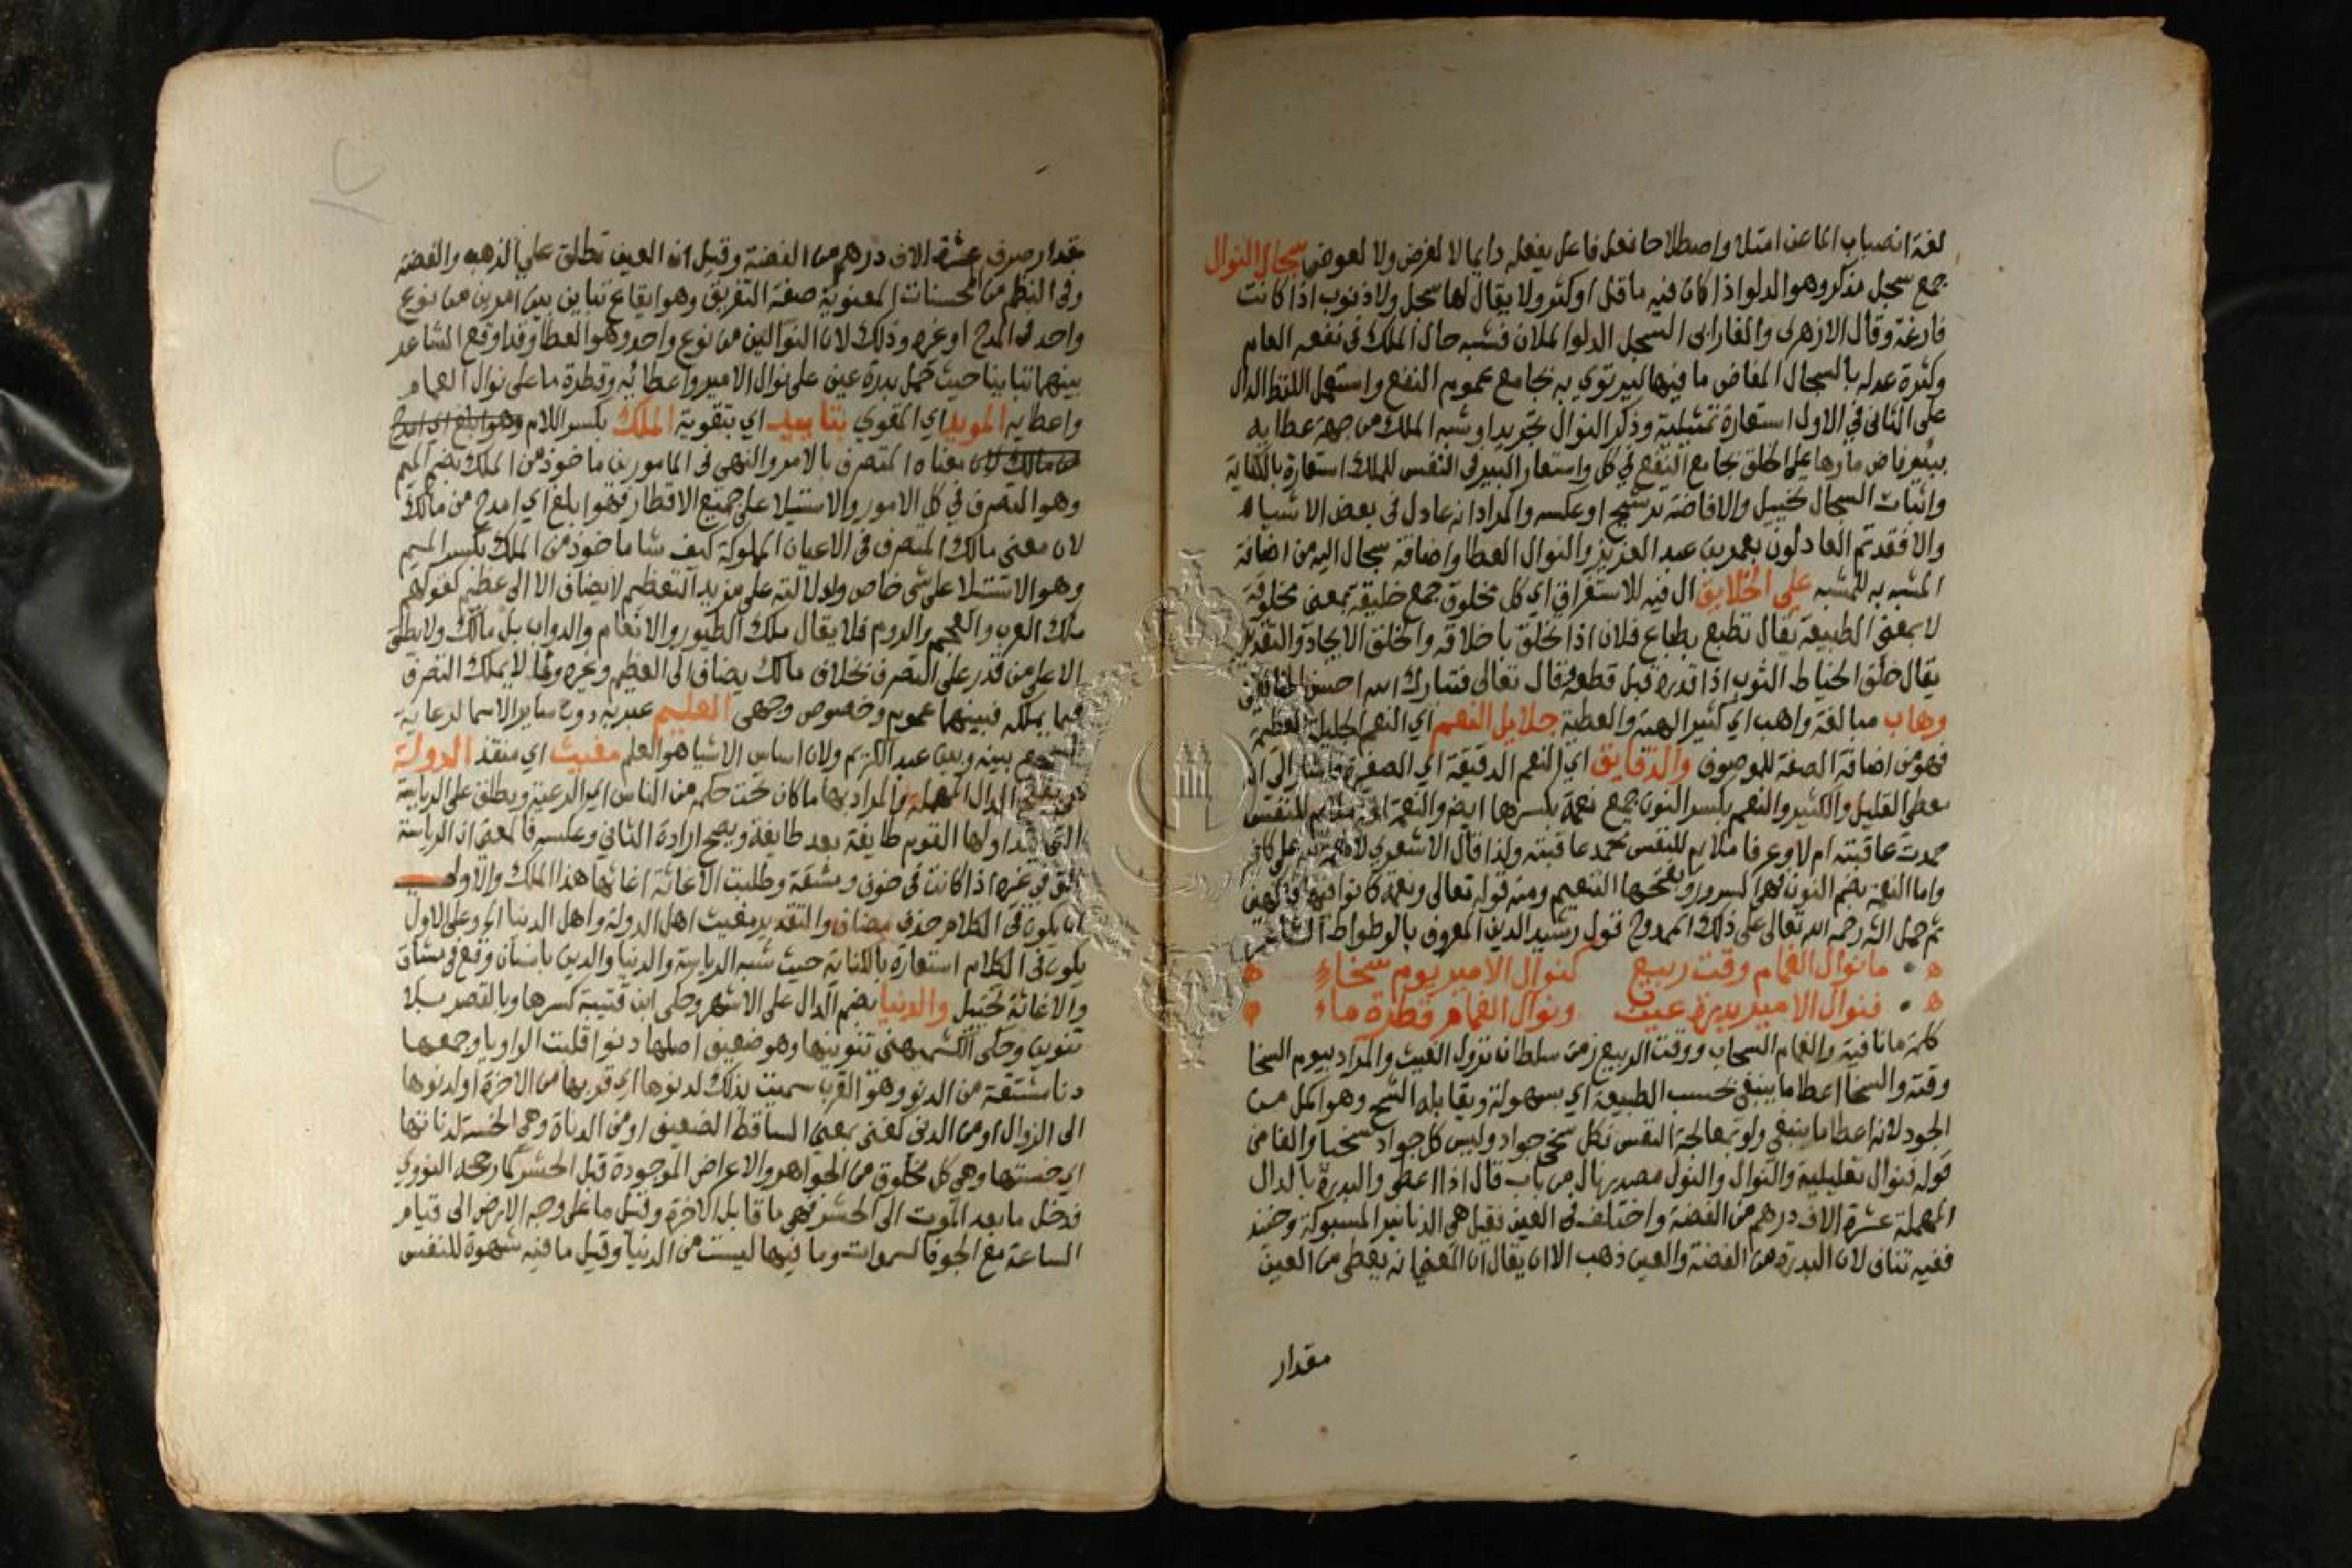 لغة انصباب الما عن امتلا واصطلاحا فعل فاعل يفعله دايما لا لغرض ولا لعوض سجال النوال
جمع سجل مذكر وهو الدلو اذا كان فيه ما قل او كثر ولا يقال لها سجل ولا ذنوب اذا كانت
فارغة وقال الازهري والفارابي السجل الدلو الملان فشبه حال الملك في نفعه العام
وكثرة عدله بالسجال المفاض ما فيها ليرتوي به بجامع عموم النفع واستعمل اللفظ الدال
على الثاني في الاول استعارة تمثيلية وذكر النوال تجريد او شبه الملك من جهة عطايه
ببئر فاض ماوها على الخلق بجامع النفع في كل واستعار البير في النفس للملك استعارة بالكناية
واثبات السجال تخييل والافاضة ترشيح او عكسه والمراد انه عادل في بعض الاشياء
والا فقد تم العادلون بعمر بن عبد العزيز والنوال العطا واضافة سجال اليه من اضافة
المشبه به للمشبه على الخلايق ال فيه للاستغراق اي كل مخلوق جمع خليقة بمعنى مخلوقة
لا بمعنى الطبيعة يقال تطبع بطباع فلان اذا تخلق باخلاقه والخلق الايجاد والتقدير
يقال خلق الخياط الثوب اذا قدره قبل قطعه فقال تعالى فتبارك الله احسن الخالقين
وهاب مبالغة واهب اي كثير الهبة والعطية جلايل النعم اي النعم الجليلة العظيمة
فهو من اضافة الصفة للموصوف والدقايق اي النعم الدقيقة اي الصغيرة واشار الى انه
يعطى القليل والكثير والنعم بكسر النون جمع نعمة بكسرها ايض والنعمة لغة ملايم للنفس
حمدت عاقبته ام لا وعرفا ملايم للنفس تحمد عاقبته ولذا قال الاشعري لا نعمة لله على كافر
واما النعمة بضم النون فهي السرور وبفتحها التنعيم ومنه قوله تعالى ونعمة كانوا فيها فاكهين
ثم حمل الش رحمه الله تعالى على ذلك الممدوح قول رشيد الدين المعروف بالوطواط الشاعر
ما نوال الغمام وقت ربيع كنوال الامير يوم سخاء
فنوال الامير بدرة عين ونوال الغمام قطرة ماء
كلمة ما نافية والغمام السحاب ووقت الربيع زمن سلطانه نزول الغيث والمراد بيوم السخا
وقته والسخا اعطا ما ينبغي بحسب الطبيعة اي بسهولة ويقابله الشح وهو اكمل من
الجود لانه اعطا ما ينبغي ولو بمعالجة النفس فكل سخي جواد وليس كل جواد سخيا والفا في
قوله فنوال تعليلية والنوال والنول مصدر نال من باب قال اذا اعطى والبدرة بالدال
المهملة عشرة الاف درهم من الفضة واختلف في العين فقيل هي الدنانير المسبوكة وحينئذ
ففيه تنافي لان البدرة من الفضة والعين ذهب الا ان يقال ان المعنى انه يعطى من العين
مقدار
مقدار صرف عشرة الاف درهم من الفضة وقيل ان العين تطلق على الذهب والفضة
وفي النظم من المحسنات المعنوية صفة التفريق وهو ايقاع تباين بين امرين من نوع
واحد في المدح او غيره وذلك لان النوالين من نوع واحد وهو العطا وقد اوقع الشاعر
بينهما تباينا حيث حمل بدرة عين على نوال الامير واعطائه وقطرة ما على نوال الغمام
واعطايه المويد اي المقوي بتاييد اي بتقوية الملك بكسر اللام وهو ابلغ اي امدح
من مالك لان معناه المتصرف بالامر والنهي في المامورين ماخوذ من الملك بضم الميم
وهو التصرف في كل الامور والاستيلا على جميع الاقطار فهو ابلغ اي امدح من مالك
لان معنى مالك المتصرف في الاعيان المملوكة كيف شا ماخوذ من الملك بكسر الميم
وهو الاستيلا على شي خاص ولدلالته على مزيد التعظيم لا يضاف الا الى عظيم كقولهم
ملك العرب والعجم والروم فلا يقال ملك الطيور والانعام والدواب بل مالك ولا يطلق
الا على من قدر على التصرف بخلاف مالك يضاف الى العظيم وغيره ولما لا يملك التصرف
فيما يملكه فبينهما عموم وخصوص وجهي العليم عبر به دون ساير الاسما لرعاية
السجع بينه وبين عبد الكريم ولان اساس الاشيا هو العلم مغيث اي منقذ الدولة
هي بفتح الدال المهملة والمراد بها ما كان تحت حكمه من الناس اي الرعية ويطلق على الرياسة
التي يتداولها القوم طايفة بعد طايفة ويصح ارادة الثاني وعكسه فالمعنى ان الرياسة
التي في غيره اذا كانت في خوف ومشقة وطلبت الاغاثة اغاثها هذا الملك والاولى
ان يكون في الكلام حذف مضاف والتقدير مغيث اهل الدولة واهل الدنيا الخ وعلى الاول
يكون في الكلام استعارة بالكناية حيث شبه الرياسة والدنيا والدين بانسان وقع في مشاق
والاغاثة تخييل والدنيا بضم الدال على الاشهر وحكى ابن قتيبة كسرها وبالقصر بلا
تنوين وحكى الكشميهني تنوينها وهو ضعيف اصلها دنوا قلبت الواو يا وجمعها
دنا مشتقة من الدنو وهو القرب سميت بذلك لدنوها اي قربها من الاخرة او لدنوها
الى الزوال او من الدني كغني بمعنى الساقط الضعيف او من الدناة وهي الخسة لدناتها
اي خستها وهي كل مخلوق من الجواهر والاعراض الموجودة قبل الحشر كما رجحه النووي
فدخل ما بعد الموت الى الحشر فهي ما قابل الاخرة وقيل ما على وجه الارض الى قيام
الساعة مع الجو فالسموات وما فيها ليست من الدنيا وقيل ما فيه شهوة للنفس